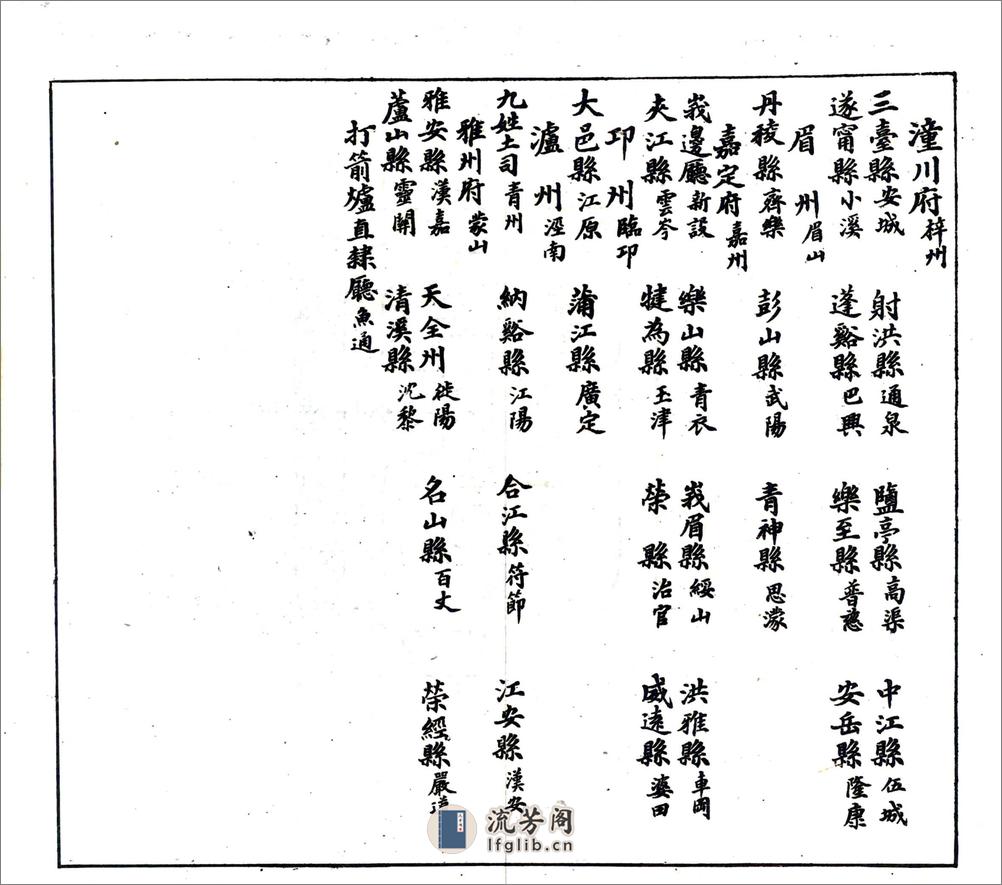 潼川府 梓州
三臺縣 安城 射洪縣 通泉 鹽亭縣 高渠 中江縣 伍城
遂甯縣 小溪 蓬谿縣 巴興 樂至縣 普慈 安岳縣 隆康
眉州 眉山
丹稜縣 齊樂 彭山縣 武陽 青神縣 思濛
嘉定府 嘉州
峩邊廳 新設 樂山縣 青衣 峩眉縣 綏山 洪雅縣 車岡
夾江縣 雲岑 犍為縣 玉津 榮縣 治官 威遠縣 婆田
邛州 臨邛
大邑縣 江原 蒲江縣 廣定
瀘州 瀘南
九姓土司 青州 納谿縣 江陽 合江縣 符節 江安縣 漢安
雅州府 蒙山
雅安縣 漢嘉 天全州 徙陽 名山縣 百丈 榮經縣 嚴道
蘆山縣 靈關 清溪縣 沈黎
打箭爐直隸廳 魚通
流芳阁
lfglib.cn